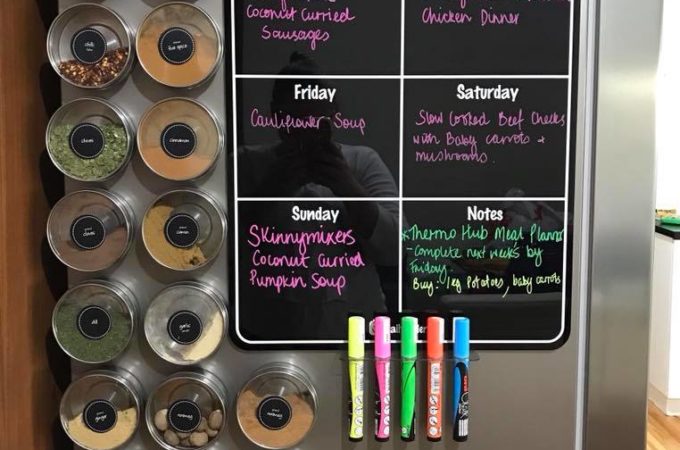 Coconut Curried
Sausages
Chicken Dinner
Friday
Cauliflower Soup
Saturday
Slow Cooked Beef Cheeks
with Baby carrots +
mushrooms.
Sunday
Skinnymixers
Coconut Curried
Pumpkin Soup
Notes
*Thermo Hub Meal Planner
- Complete next weeks by
Friday.
Buy: 1kg Potatoes, baby carrots
chilli
five spice
chives
cinnamon
cloves
cumin
dill
garlic
ginger
nutmeg
nutmeg